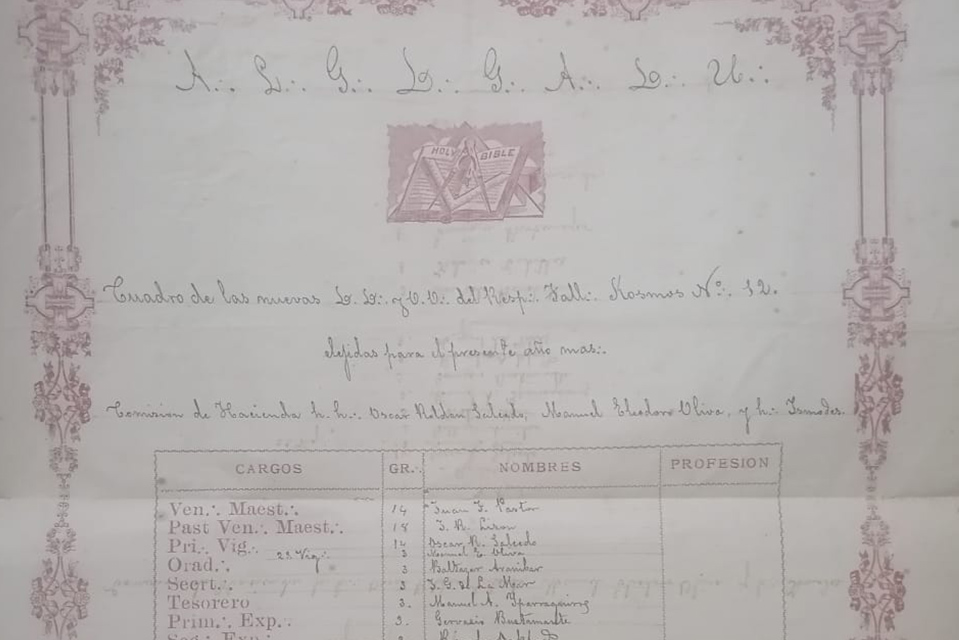 A∴ L∴ G∴ D∴ G∴ A∴ D∴ U∴
HOLY BIBLE
Cuadro de las nuevas D.D∴ y O.O∴ del Resp∴ Tall∴ Kosmos Nº 12.
elejidas para el presente año mas∴
Comision de Hacienda h.h∴ Oscar Roldan Salcedo, Manuel Eleodoro Oliva, y h∴ Ismodes.
CARGOS GR∴ NOMBRES PROFESION
Ven∴ Maest∴ 14 Juan F. Pastor
Past Ven∴ Maest∴ 18
Pri∴ Vig∴ 14 Oscar R. Salcedo
2º Vig∴ 3 Manuel E. Oliva
Orad∴ 3 Baltazar
Secrt∴ 3
Tesorero 3. Manuel A. Yparraguirre
Prim∴ Exp∴ 3. Gervacio Bustamante
Seg∴ Exp∴